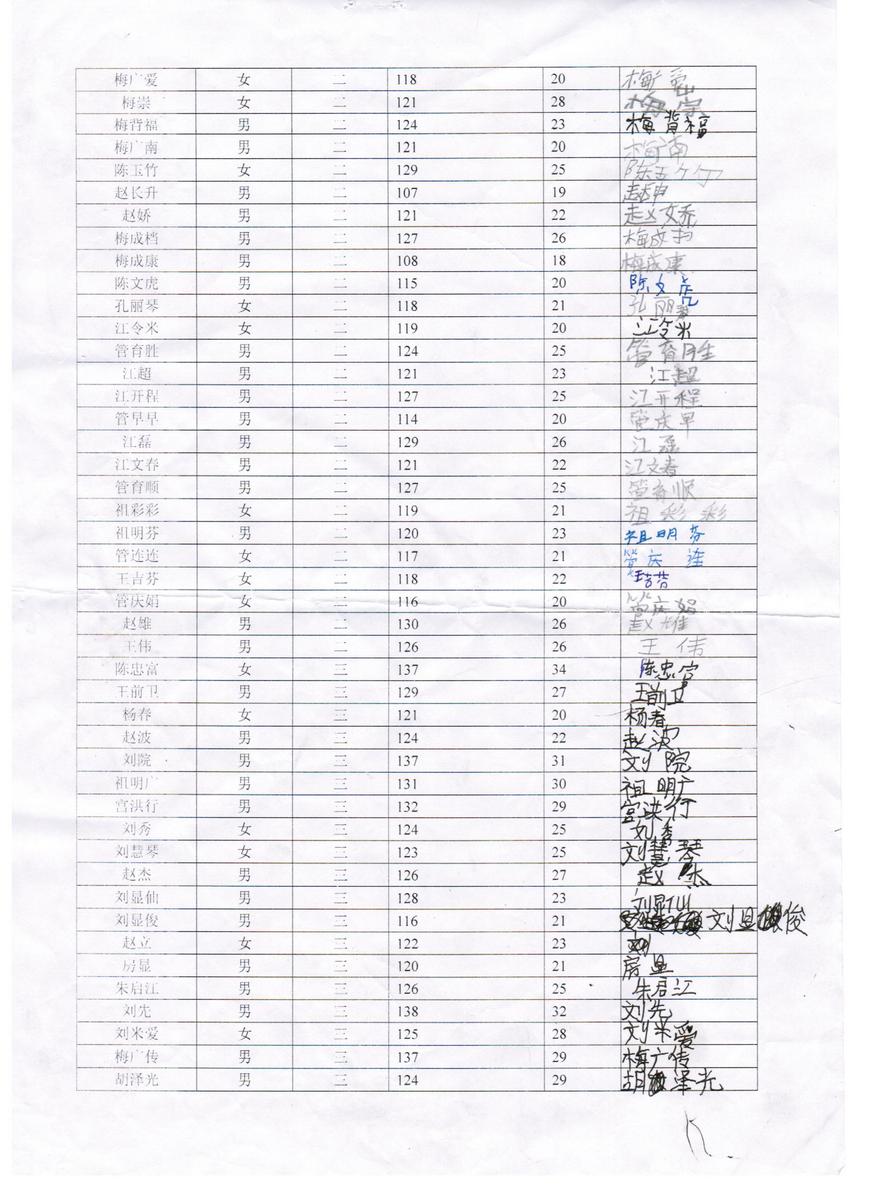 梅广爱 女 二 118 20 梅广爱
梅崇 女 二 121 28 梅崇
梅背福 男 二 124 23 梅背福
梅广南 男 二 121 20 梅广南
陈玉竹 女 二 129 25 陈玉竹
赵长升 男 二 107 19
赵娇 男 二 121 22 赵娇
梅成档 男 二 127 26 梅成
梅成康 男 二 108 18 梅成康
陈文虎 男 二 115 20 陈文虎
孔丽琴 女 二 118 21 孔丽琴
江令米 女 二 119 20 江令米
管育胜 男 二 124 25 管育胜
江超 男 二 121 23 江超
江开程 男 二 127 25 江开程
管早早 男 二 114 20 管庆早
江磊 男 二 129 26 江磊
江文春 男 二 121 22 江文春
管育顺 男 二 127 25 管育顺
祖彩彩 女 二 119 21 祖彩彩
祖明芬 男 二 120 23 祖明芬
管连连 女 二 117 21 管庆连
王吉芬 女 二 118 22
管庆娟 女 二 116 20 管庆娟
赵雄 男 二 130 26 赵雄
王伟 男 二 126 26 王伟
陈忠富 女 三 137 34 陈忠富
王前卫 男 三 129 27 王前卫
杨春 女 三 121 20 杨春
赵波 男 三 124 22 赵波
刘院 男 三 137 31 刘院
祖明广 男 三 131 30 祖明广
宫洪行 男 三 132 29 宫洪行
刘秀 女 三 124 25 刘秀
刘慧琴 女 三 123 25 刘慧琴
赵杰 男 三 126 27 赵杰
刘显仙 男 三 128 23 刘显仙
刘显俊 男 三 116 21 刘显俊
赵立 女 三 122 23
房显 男 三 120 21 房显
朱启江 男 三 126 25 朱启江
刘先 男 三 138 32 刘先
刘米爱 女 三 125 28 刘米爱
梅广传 男 三 137 29 梅广传
胡泽光 男 三 124 29 胡泽光